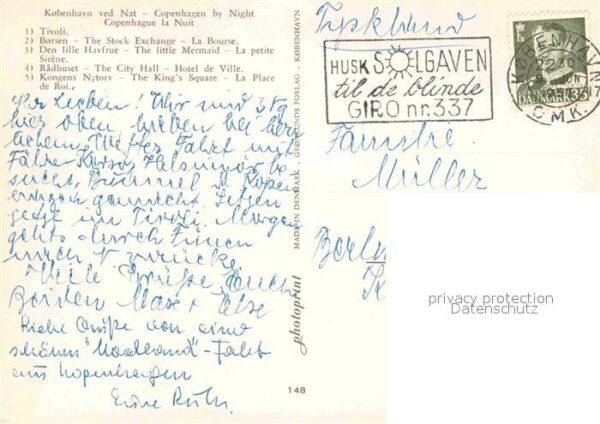 København ved Nat – Copenhagen by Night
Copenhague la Nuit
1) Tivoli.
2) Børsen – The Stock Exchange – La Bourse.
3) Den lille Havfrue – The little Mermaid – La petite
Sirène.
4) Rådhuset – The City Hall – Hotel de Ville.
5) Kongens Nytorv – The King's Square – La Place
de Roi.
Ihr Lieben! Wir sind 3 Tg
hier oben haben bei herr
lichem Wetter Fahrt mit
Helsingör be
sucht, Bummel in Kopen
hagen gemacht. Sitzen
jetzt im Tivoli. Morgen
gehts durch Fünen
nach zurück.
Viele Grüße Euch
Beiden Max + Else
Liebe Grüße von einer
schönen "Nordland"-Fahrt
aus Kopenhagen
Eure Ruth.
MADE IN DENMARK – GRØNLUNDS FORLAG – KØBENHAVN
photoprint
148
Tyskland
HUSK SOLGAVEN
til de blinde
GIRO nr. 337
KØBENHAVN
OMK.
DANMARK 35
Familie
Müller
Berlin
privacy protection
Datenschutz